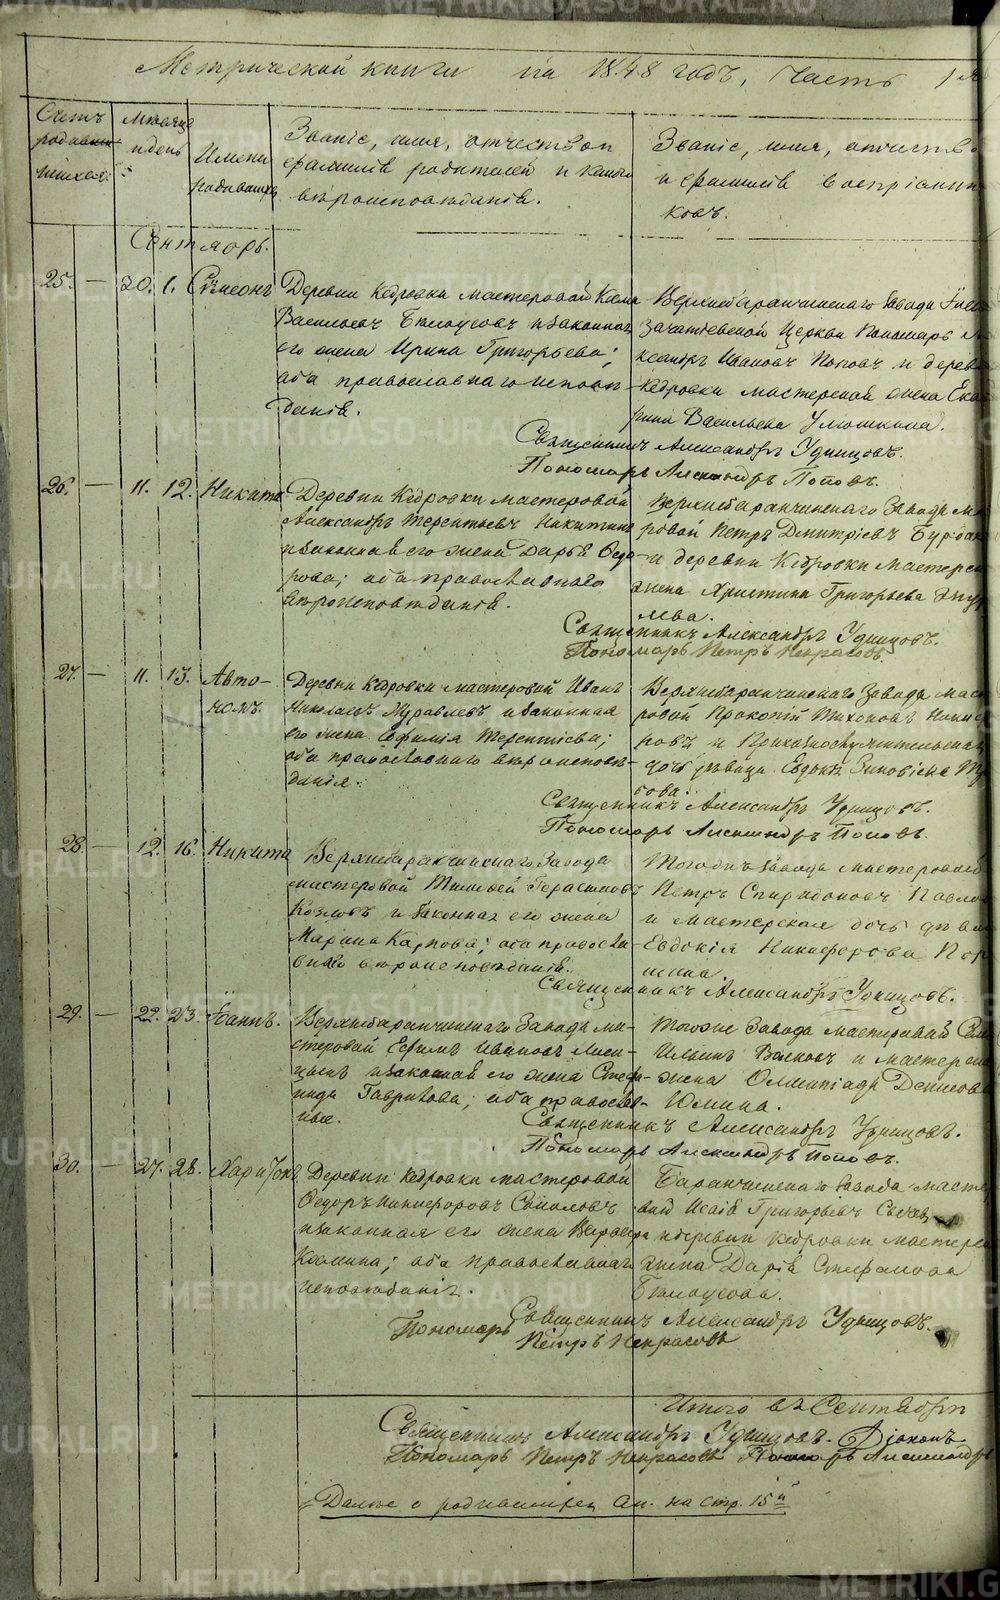 Метрической книги на 1848 годъ, Часть 1я
Счетъ родившихся:
Мѣсяцъ и день
Имена родившихся
Званіе, имя, отчество и фамилія родителей и какого вѣроисповѣданія.
Званіе, имя, отчество и фамилія воспріемниковъ.
Сентябрь.
25. — 20. 1. Симеонъ
Деревни Кедровки мастеровой
Васильевъ Бѣлоусовъ и законная
его жена Ирина Григорьева;
оба православнаго исповѣ-
данія.
Верхнебаранчинскаго Завода
Зачатіевской Церкви Пономарь
Ивановъ Поповъ и дерев
Кедровки мастерская жена Ека
рина Васильева
Священникъ Александръ Удинцовъ.
Пономарь Александръ Поповъ.
26. — 11. 12. Никита
Деревни Кедровки мастеровой
Александръ Терентьевъ Никитинъ
и законная его жена Дарья Ѳедо-
рова; оба православнаго
вѣроисповѣданія.
Верхнебаранчинскаго Завода ма
ровой Петръ Дмитріевъ
и деревни Кедровки мастерск
жена Христина Григорьева
лева.
Священникъ Александръ Удинцовъ.
Пономарь Петръ Некрасовъ.
27. — 11. 13. Авто-
номъ.
Деревни Кедровки мастеровой Иванъ
Николаевъ Журавлевъ и законная
его жена Евфимія Терентіева;
оба православнаго вѣроисповѣ-
данія.
Верхнебаранчинскаго Завода маст
ровой Прокопій Тихоновъ Никиф
ровъ и
дочь дѣвица Евдокія Зиновіева
това.
Священникъ Александръ Удинцовъ.
Пономарь Александръ Поповъ.
28. — 12. 16. Никита
Верхнебаранчинскаго Завода
мастеровой Тимофей Герасимовъ
Козловъ и законная его жена
Марина Карпова; оба правосла-
внаго вѣроисповѣданія.
Тогожъ Завода мастеровой
Петръ Спиридоновъ Павлов
и мастерская дочь дѣви
Евдокія Никифорова
шина.
Священникъ Александръ Удинцовъ.
29. — 22. 23. Іоаннъ.
Верхнебаранчинскаго Завода ма-
стеровой Ефимъ Ивановъ Лиси-
цынъ и законная его жена Стефа-
нида Гаврилова; оба православ-
ные.
Тогоже Завода мастеровой
Ильинъ Волковъ и мастерск
жена Олимпіада Денисова
Юшина.
Священникъ Александръ Удинцовъ.
Пономарь Александръ Поповъ.
30. — 27. 28. Харитонъ
Деревни Кедровки мастеровой
Ѳедоръ Никифоровъ Соколовъ
и законная его жена Варвара
Козмина; оба православнаго
исповѣданія.
Баранчинскаго Завода мастер
вой Исаія Григорьевъ
и деревни Кедровки мастерск
жена Дарія Стефанова
Бѣлоусова.
Священникъ Александръ Удинцовъ.
Пономарь Петръ Некрасовъ
Итого въ Сентябрѣ
Священникъ Александръ Удинцовъ. Діаконъ
Пономарь Петръ Некрасовъ Пономарь Александръ
Далѣе о родившихся см. на стр. 15й
METRIKI.GASO-URAL.RU